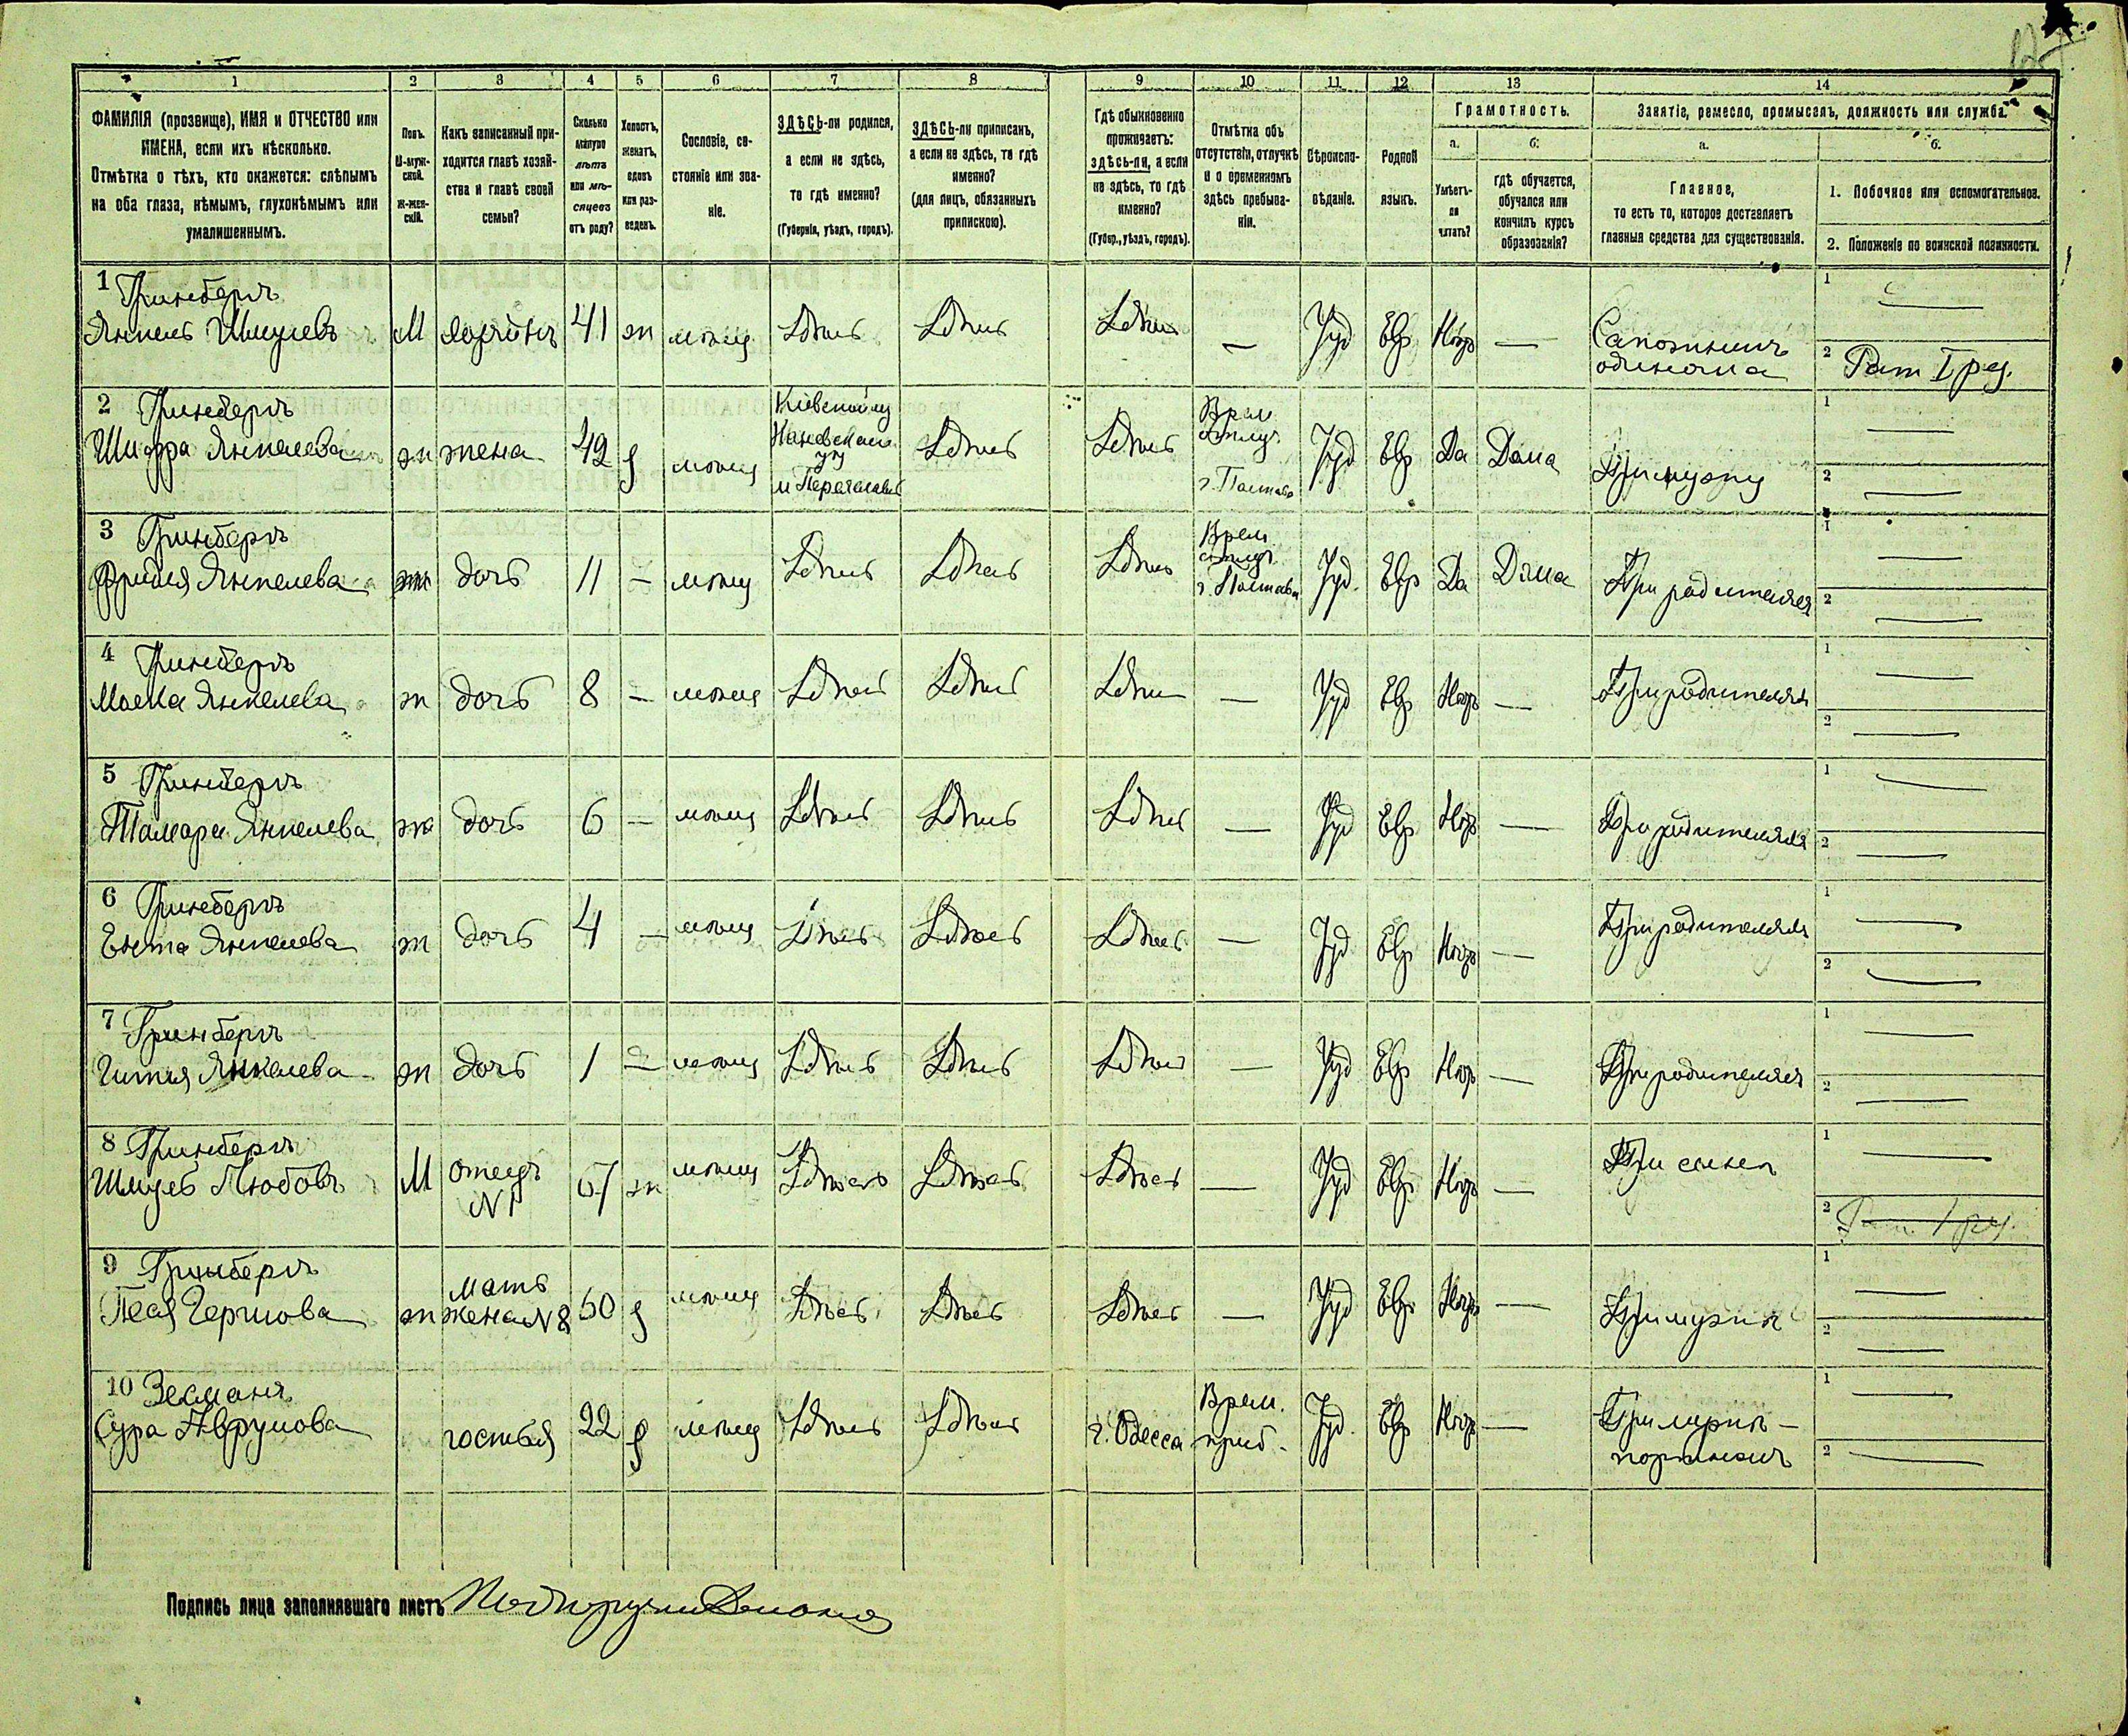 1 2 3 4 5 6 7 8 9 10 11 12 13 14
ФАМИЛІЯ (прозвище), ИМЯ и ОТЧЕСТВО или
ИМЕНА, если ихъ нѣсколько.
Отмѣтка о тѣхъ, кто окажется: слѣпымъ
на оба глаза, нѣмымъ, глухонѣмымъ или
умалишеннымъ.
Полъ.
М-муж-
ской.
Ж-жен-
скій.
Какъ записанный при-
ходится главѣ хозяй-
ства и главѣ своей
семьи?
Сколько
минуло
лѣтъ
или мѣ-
сяцевъ
отъ роду?
Холостъ,
женатъ,
вдовъ
или раз-
веденъ.
Сословіе, со-
стояніе или зва-
ніе.
ЗДѢСЬ-ли родился,
а если не здѣсь,
то гдѣ именно?
(Губернія, уѣздъ, городъ).
ЗДѢСЬ-ли приписанъ,
а если не здѣсь, то гдѣ
именно?
(для лицъ, обязанныхъ
припискою).
Гдѣ обыкновенно
проживаетъ:
здѣсь-ли, а если
не здѣсь, то гдѣ
именно?
(Губер., уѣздъ, городъ).
Отмѣтка объ
отсутствіи, отлучкѣ
и о временномъ
здѣсь пребыва-
ніи.
Вѣроиспо-
вѣданіе.
Родной
языкъ.
Грамотность.
а.
Умѣетъ-
ли
читать?
б.
гдѣ обучается,
обучался или
кончилъ курсъ
образованія?
Занятіе, ремесло, промыселъ, должность или служба.
а.
Главное,
то есть то, которое доставляетъ
главныя средства для существованія.
б.
1. Побочное или вспомогательное.
2. Положеніе по воинской повинности.
1 Гринбергъ
Янкель Шмулевъ М хозяинъ 41 ж мѣщ Здѣсь Здѣсь Здѣсь — Іуд Евр Нѣтъ — Сапожникъ
одиночка
1 —
2 Рат I раз.
2 Гринбергъ
Шифра Янкелева ж жена 42 з мѣщ
Кіевской гу
Каневскаго
у
м Переяславъ
Здѣсь Здѣсь
Врем
отлуч
г. Полтава
Іуд Евр Да Дома При мужу
1 —
2 —
3 Гринбергъ
Фридля Янкелева ж дочь 11 — мѣщ Здѣсь Здѣсь Здѣсь
Врем
отлуч
г. Полтава
Іуд. Евр Да Дома При родителях
1 —
2 —
4 Гринбергъ
Малка Янкелева ж дочь 8 — мѣщ Здѣсь Здѣсь Здѣсь — Іуд Евр Нѣтъ — При родителях
1 —
2 —
5 Гринбергъ
Тамара Янкелева ж дочь 6 — мѣщ Здѣсь Здѣсь Здѣсь — Іуд Евр Нѣтъ — При родителях
1 —
2 —
6 Гринбергъ
Ента Янкелева ж дочь 4 — мѣщ Здѣсь Здѣсь Здѣсь — Іуд Евр Нѣтъ — При родителях
1 —
2 —
7 Гринбергъ
Гитля Янкелева ж дочь 1 — мѣщ Здѣсь Здѣсь Здѣсь — Іуд Евр Нѣтъ — При родителях
1 —
2 —
8 Гринбергъ
Шмуль Любовъ М отецъ
N 1
67 ж мѣщ Здѣсь Здѣсь Здѣсь — Іуд Евр Нѣтъ — При сынѣ
1 —
2 Рат I раз.
9 Гринбергъ
Песя Гершова ж мать
жена N 8
60 з мѣщ Здѣсь Здѣсь Здѣсь — Іуд Евр Нѣтъ — При мужѣ
1 —
2 —
10 Зекманъ
Сура Аврумова гостья 22 з мѣщ Здѣсь Здѣсь г. Одесса
Врем.
преб.
Іуд. Евр Нѣтъ — При мужѣ —
портномъ
1 —
2 —
Подпись лица заполнявшаго листъ